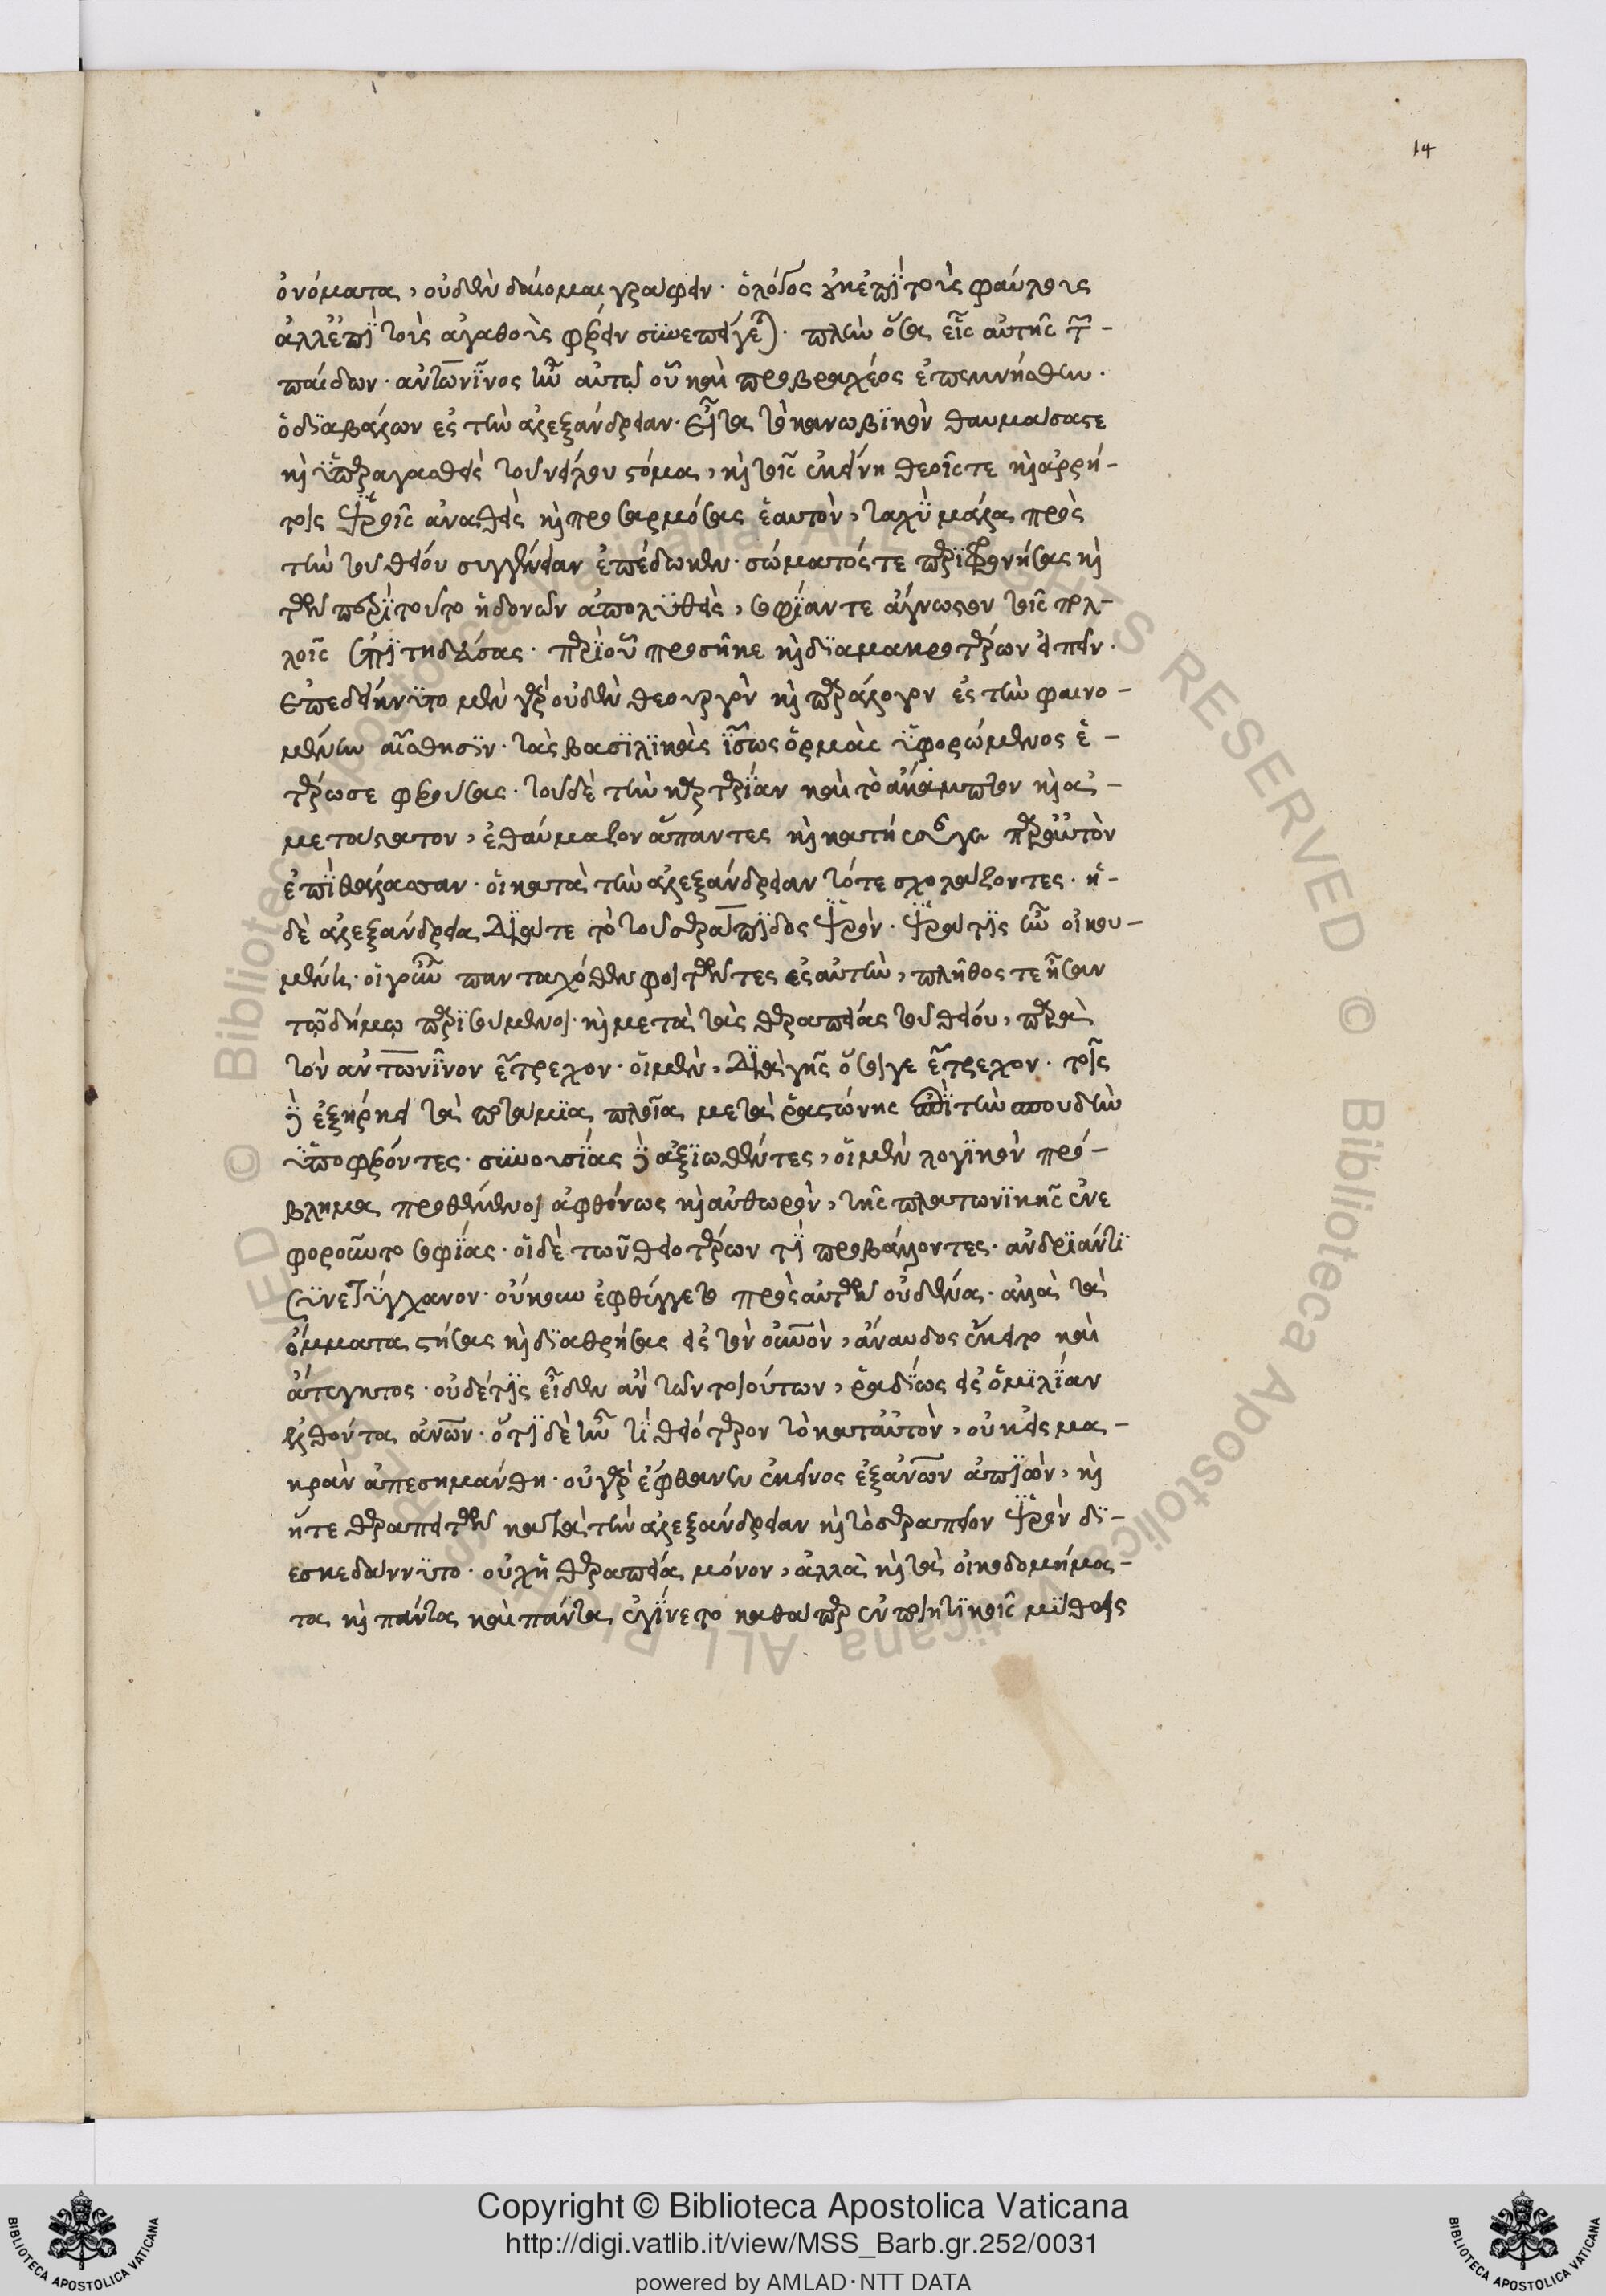 14
ὀνόματα, οὐδὲν δέομαι γράφειν. ὁ λόγος οὐκ ἐπὶ τοὺς φαύλους
ἀλλ' ἐπὶ τοὺς ἀγαθοὺς φέρειν συνεπείγεται. πλὴν ὅσα εἷς αὐτῆς τῶν
παίδων. ἀντωνῖνος ἦν αὐτῷ οὗ καὶ πρὸ βραχέος ἐπεμνήσθην.
ὁ διαβαλὼν ἐς τὴν ἀλεξάνδρειαν. εἶτα τὸ κανωβικὸν θαυμάσας τε
καὶ ὑπεραγασθεὶς τοῦ νείλου στόμα, καὶ τοῖς ἐκείνῃ θεοῖς τε καὶ ἀρρή-
τοις ἱεροῖς ἀναθεὶς καὶ προσαρμόσας ἑαυτὸν, ταχὺ μάλα πρὸς
τὴν τοῦ θείου συγγένειαν ἐπέδωκεν. σώματός τε περιφρονήσας καὶ
τῶν περὶ τοῦτο ἡδονῶν ἀπολυθεὶς, σοφίαν τε ἄγνωστον τοῖς πολ-
λοῖς ἐπιτηδεύσας. περὶ οὗ προσῆκε καὶ διὰ μακροτέρων εἰπεῖν.
ἐπεδείκνυτο μὲν γὰρ οὐδὲν θεουργὸν καὶ παράλογον ἐς τὴν φαινο-
μένην αἴσθησιν. τὰς βασιλικὰς ἴσως ὁρμὰς ὑφορώμενος ἑ-
τέρωσε φερούσας. τοῦ δὲ τὴν καρτερίαν καὶ τὸ ἄκαμπτον καὶ ἀ-
μετάστατον, ἐθαύμαζον ἅπαντες καὶ κατῄεσάν γε παρ' αὐτὸν
ἐπὶ θάλασσαν. οἱ κατὰ τὴν ἀλεξάνδρειαν τότε σχολάζοντες. ἡ
δὲ ἀλεξάνδρεια διά τε τὸ τοῦ σεράπιδος ἱερὸν. ἱερά τις ἦν οἰκου-
μένη. οἱ γοῦν πανταχόθεν φοιτῶντες ἐς αὐτὴν, πλῆθός τε ἦσαν
τῷ δήμῳ παρισούμενοι. καὶ μετὰ τὰς θεραπείας τοῦ θείου, παρὰ
τὸν ἀντωνῖνον ἔτρεχον. οἱ μὲν, διὰ γῆς ὅσοι γε ἔτρεχον. τοῖς
δὲ ἐξήρκει τὰ ποτάμια πλοῖα μετὰ ῥᾳστώνης ἐπὶ τὴν σπουδὴν
ὑποφέροντες. συνουσίας δὲ ἀξιωθέντες, οἱ μὲν λογικὸν πρό-
βλημα προθέμενοι ἀφθόνως καὶ αὐθωρὸν, τῆς πλατωνικῆς ἐνε
φοροῦντο σοφίας. οἱ δὲ τῶν θειοτέρων τὶ προβάλλοντες. ἀνδριάντι
συνετύγχανον. οὔκουν ἐφθέγγετο πρὸς αὐτῶν οὐδένα. ἀλλὰ τὰ
ὄμματα στήσας καὶ διαθρήσας εἰς τὸν οὐρανὸν, ἄναυδος ἔκειτο καὶ
ἄτεγκτος. οὐδέ τις εἶδεν ἂν τῶν τοιούτων, ῥᾳδίως εἰς ὁμιλίαν
ἐλθόντα ἀνθρώπων. ὅτι δὲ ἦν τὶ θειότερον τὸ κατ' αὐτὸν, οὐκ εἰς μα-
κρὰν ἀπεσημάνθη. οὐ γὰρ ἔφθανεν ἐκεῖνος ἐξ ἀνθρώπων ἀπιὼν, καὶ
ἥ τε θεραπεία τῶν κατὰ τὴν ἀλεξάνδρειαν καὶ τὸ σεραπεῖον ἱερὸν δι-
εσκεδάννυτο. οὐχ ἡ θεραπεία μόνον, ἀλλὰ καὶ τὰ οἰκοδομήμα-
τα καὶ πάντα καὶ πάντα ἐγίνετο καθάπερ ἐν ποιητικοῖς μύθοις
© Biblioteca Apostolica Vaticana ALL RIGHTS RESERVED
Copyright © Biblioteca Apostolica Vaticana
http://digi.vatlib.it/view/MSS_Barb.gr.252/0031
powered by AMLAD·NTT DATA
BIBLIOTECA APOSTOLICA VATICANA
BIBLIOTECA APOSTOLICA VATICANA